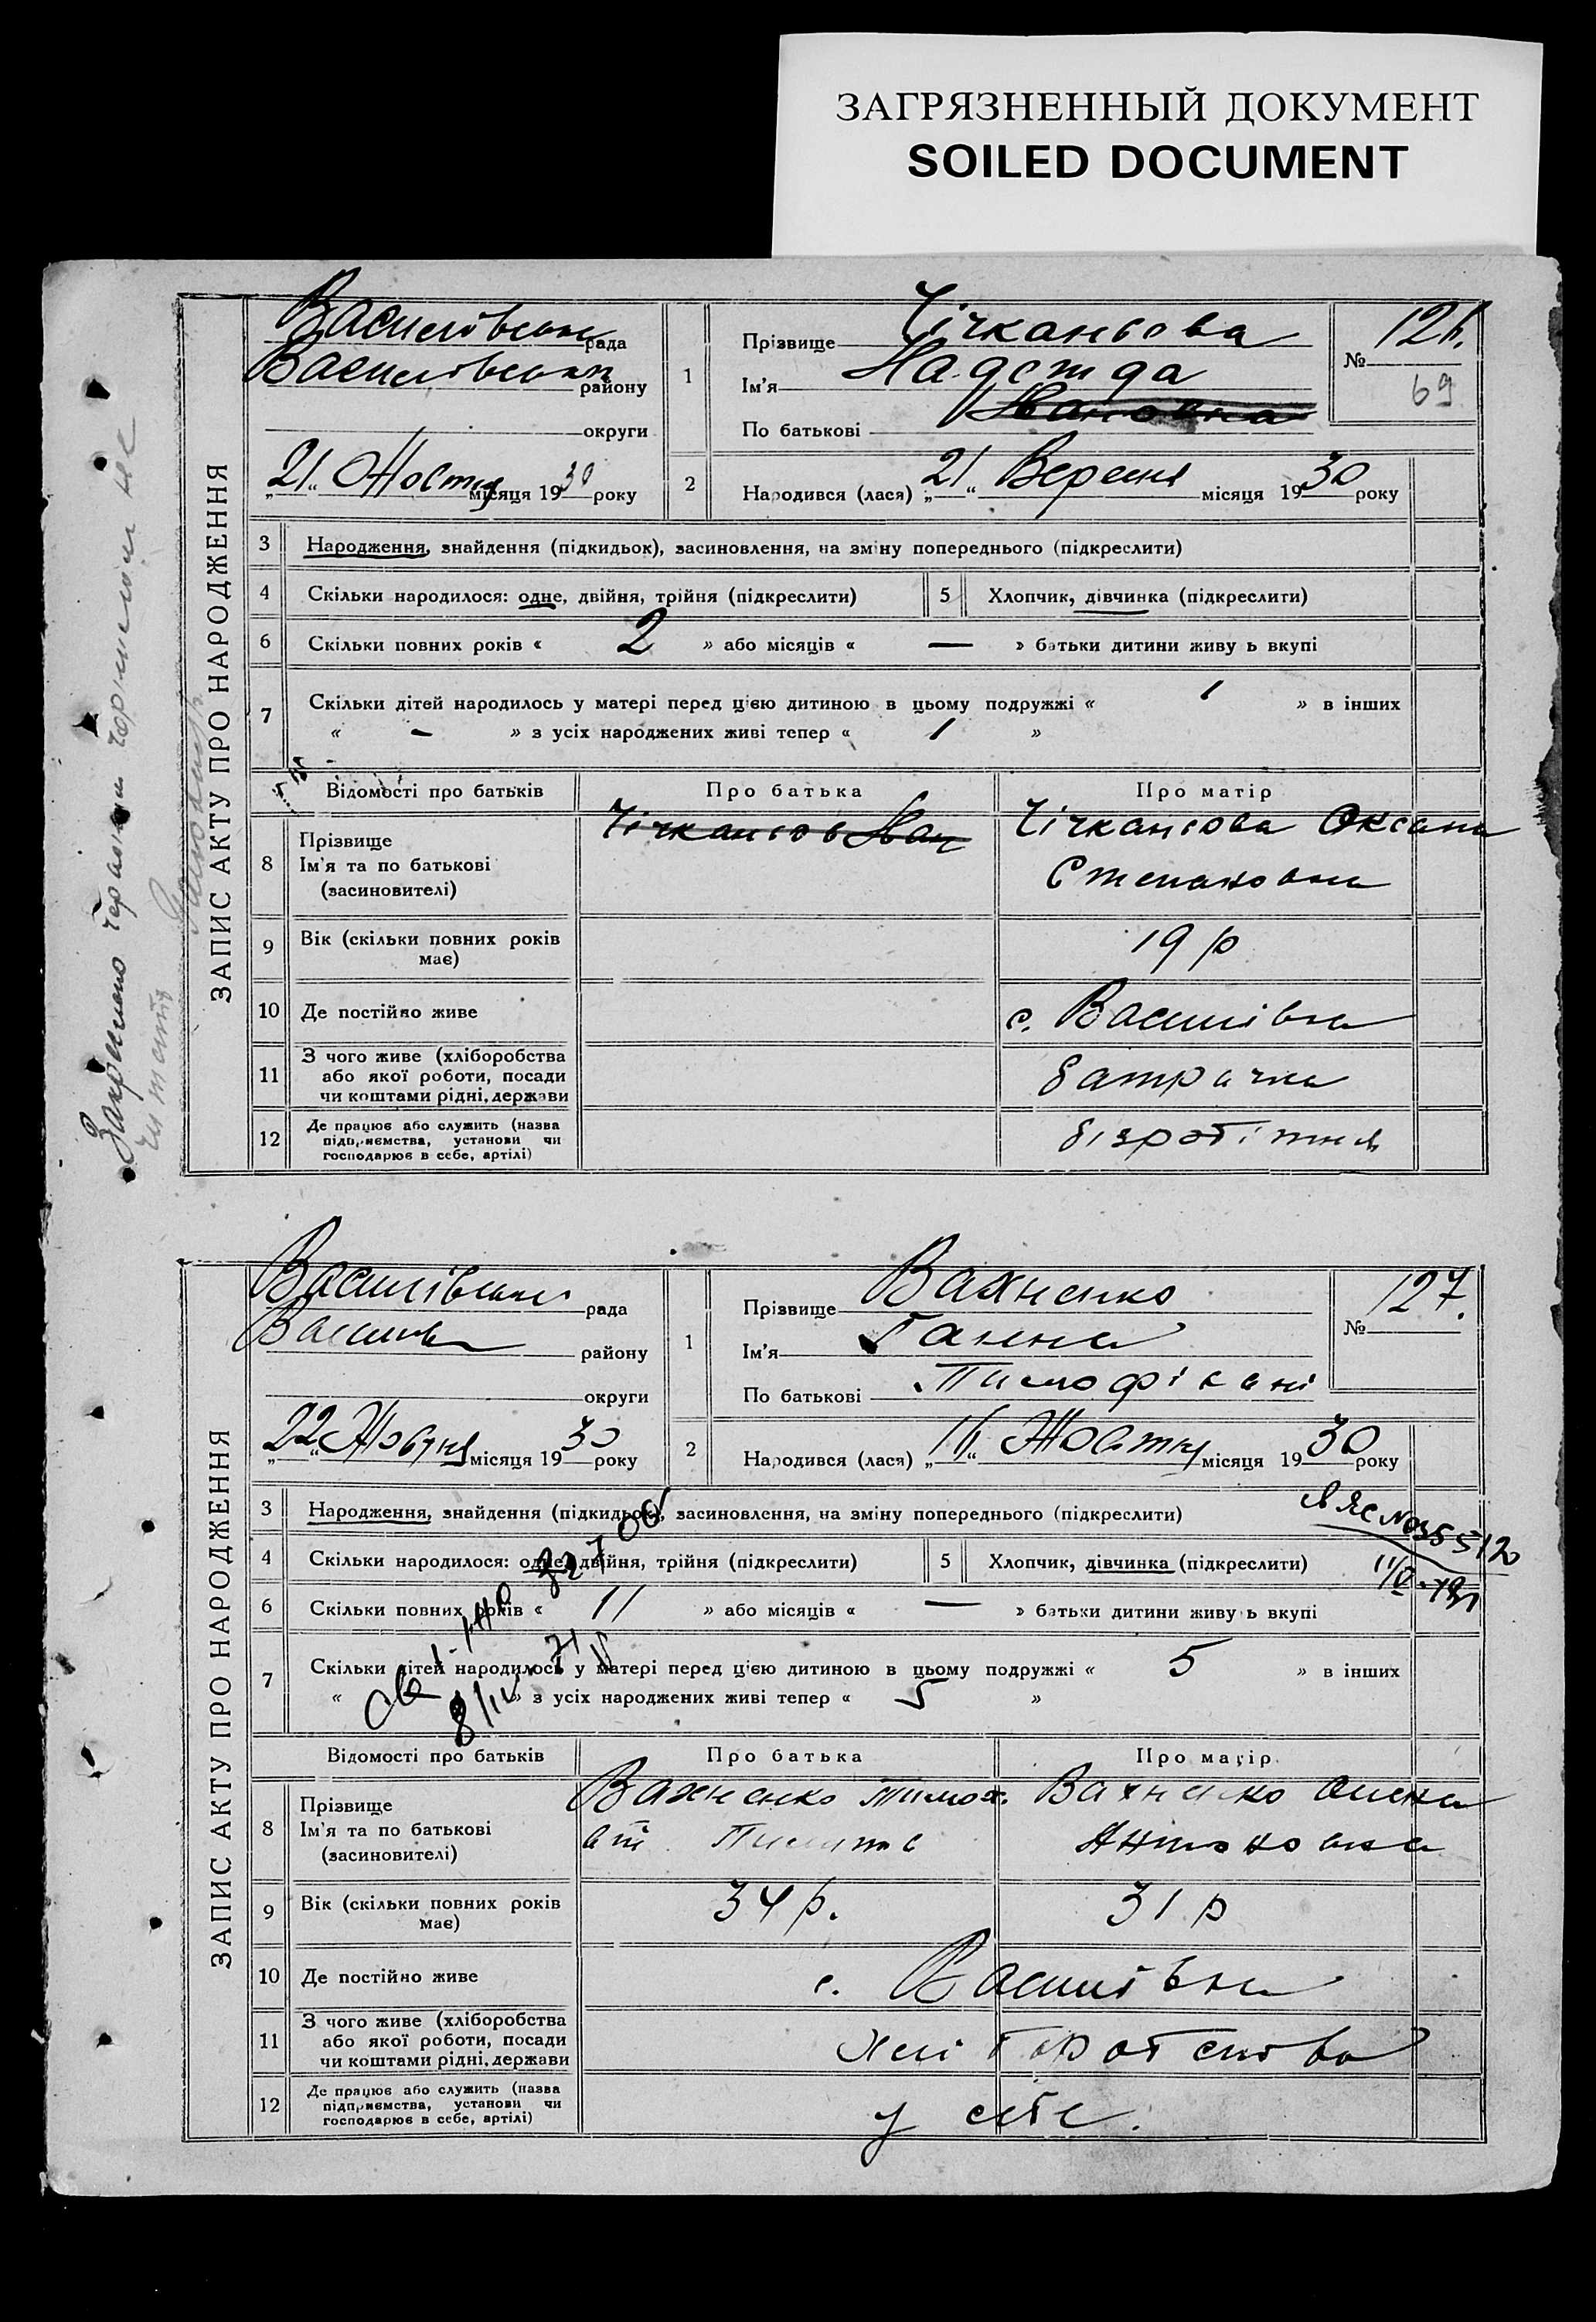 ЗАГРЯЗНЕННЫЙ ДОКУМЕНТ
SOILED DOCUMENT
ЗАПИС АКТУ ПРО НАРОДЖЕННЯ
Василівська рада
Василівськ району
округи
„21“ Жовтня місяця 1930 року
1
Прізвище Чічканьова
Ім'я Надежда
По батькові Івановна
№ 126.
69
2
Народився (лася) „21“ Вересня місяця 1930 року
3 Народження, знайдення (підкидьок), засиновлення, на зміну попереднього (підкреслити)
4 Скільки народилося: одне, двійня, трійня (підкреслити)
5 Хлопчик, дівчинка (підкреслити)
6 Скільки повних років « 2 » або місяців « — » батьки дитини живу ь вкупі
7 Скільки дітей народилось у матері перед цією дитиною в цьому подружжі « 1 » в інших
« - » з усіх народжених живі тепер « 1 »
Відомості про батьків Про батька Про матір
8 Прізвище
Ім'я та по батькові
(засиновителі)
Чічканьов Іван
Чічканьова Оксана
Степановна
9 Вік (скільки повних років
має)
19 р
10 Де постійно живе
с. Василівка
11 З чого живе (хліборобства
або якої роботи, посади
чи коштами рідні, держави
батрачка
12 Де працює або служить (назва
підприємства, установи чи
господарює в себе, артілі)
безробітня
ЗАПИС АКТУ ПРО НАРОДЖЕННЯ
Василівська рада
району
округи
„22“ Жовтня місяця 1930 року
1
Прізвище Вахненко
Ім'я Ганна
По батькові Тимофієвні
№ 127.
2
Народився (лася) „16“ Жовтня місяця 1930 року
3 Народження, знайдення (підкидьок), засиновлення, на зміну попереднього (підкреслити)
4 Скільки народилося: одне, двійня, трійня (підкреслити)
5 Хлопчик, дівчинка (підкреслити)
6 Скільки повних років « 11 » або місяців « — » батьки дитини живу ь вкупі
7 Скільки дітей народилось у матері перед цією дитиною в цьому подружжі « 5 » в інших
« » з усіх народжених живі тепер « 5 »
Відомості про батьків Про батька Про матір
8 Прізвище
Ім'я та по батькові
(засиновителі)
Вахненко Тимох.
Вахненко
Антоновна
9 Вік (скільки повних років
має)
34 р.
31 р
10 Де постійно живе
с. Василівка
11 З чого живе (хліборобства
або якої роботи, посади
чи коштами рідні, держави
хліборобство
12 Де працює або служить (назва
підприємства, установи чи
господарює в себе, артілі)
у себе.